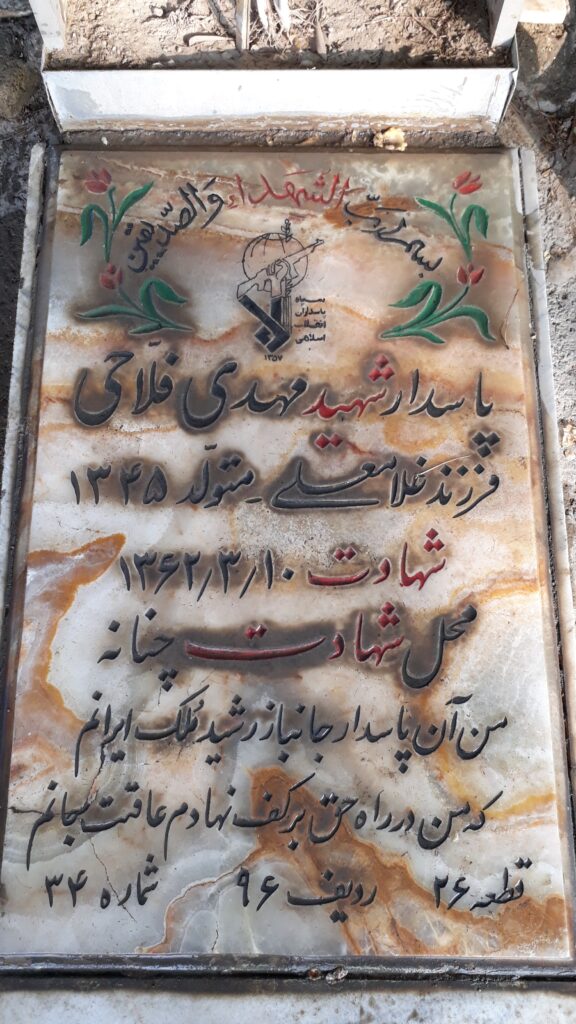 بسم رب الشهداء والصدیقین
سپاه
پاسداران
انقلاب
اسلامی
۱۳۵۷
پاسدار شهید مهدی فلّاحی
فرزند غلامعلی متولّد ۱۳۴۵
شهادت ۱۳۶۲٫۳٫۱۰
محل شهادت چنانه
من آن پاسدار جانباز رشید مُلک ایرانم
که من در راه حق بر کف نهادم عاقبت جانم
قطعه ۲۶ ردیف ۹۶ شماره ۳۴